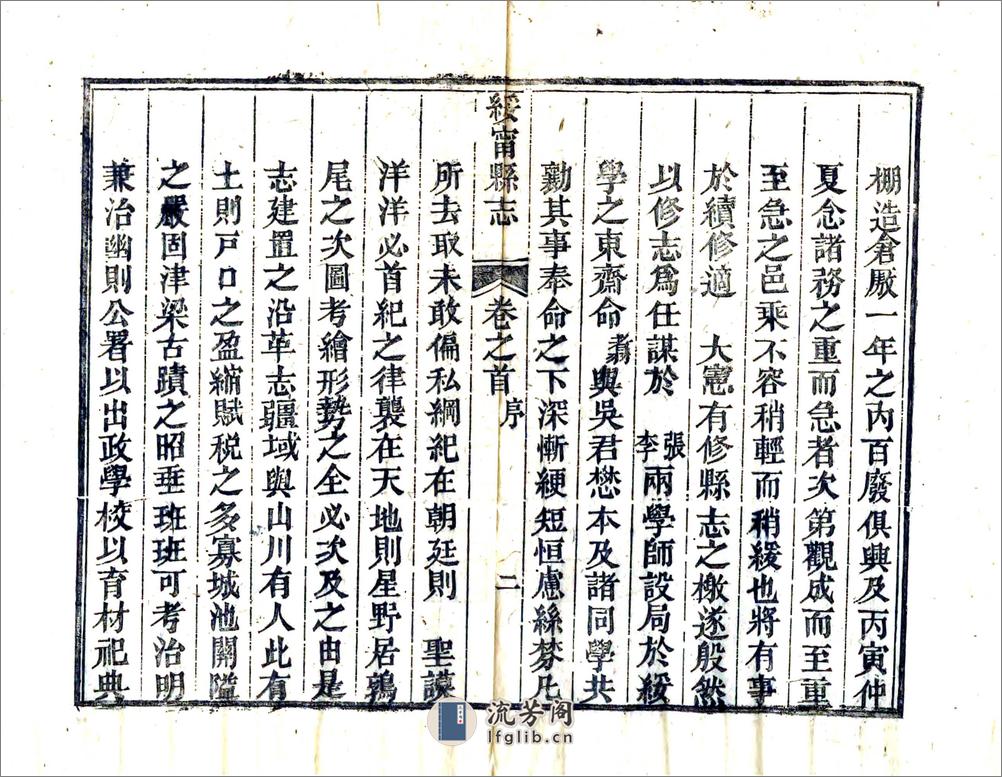 棚造倉厫一年之內百廢俱興及丙寅仲
夏念諸務之重而急者次第觀成而至重
至急之邑乘不容稍輕而稍緩也將有事
於續修適　大憲有修縣志之檄遂殷然
以修志爲任謀於　張李兩學師設局於綏
學之東齋命　與吳君懋本及諸同學共
勷其事奉命之下深慚綆短恒慮絲棼凡
綏甯縣志　卷之首　序　二
所去取未敢偏私綱紀在朝廷則　聖謨
洋洋必首紀之律襲在天地則星野居鶉
尾之次圖考繪形勢之全必次及之由是
志建置之沿革志疆域與山川有人此有
土則戸口之盈縮賦税之多寡城池關隘
之嚴固津梁古蹟之昭垂班班可考治明
兼治幽則公署以出政學校以育材祀典
流芳阁
lfglib.cn